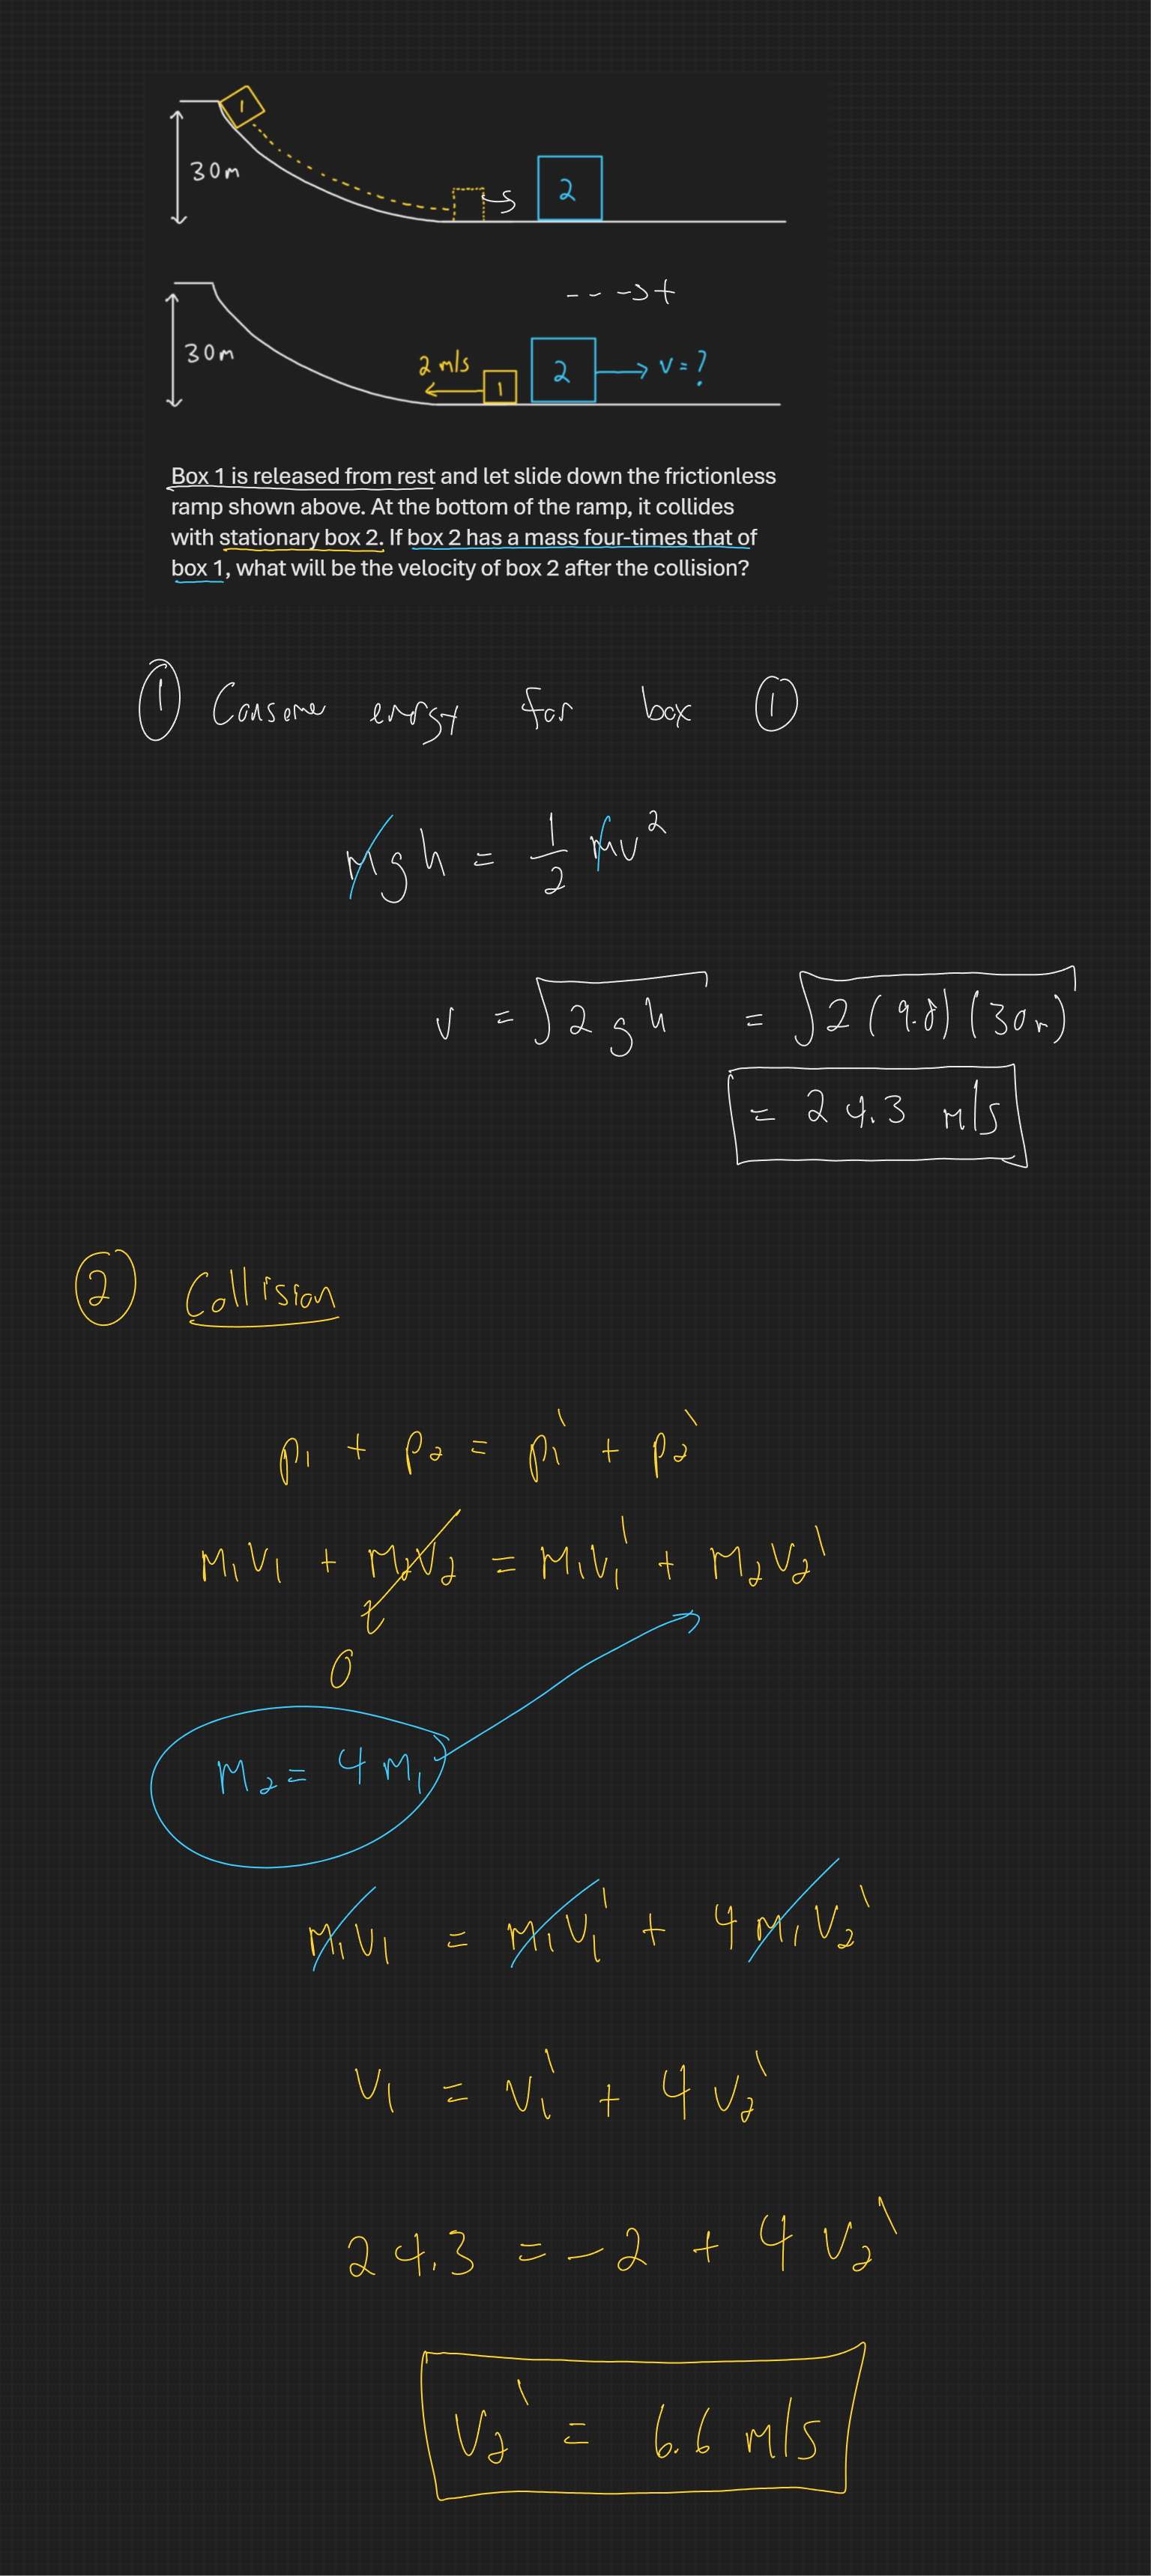 1
30m
2
---> +
30m
2 m/s
1
2
v = ?
Box 1 is released from rest and let slide down the frictionless
ramp shown above. At the bottom of the ramp, it collides
with stationary box 2. If box 2 has a mass four-times that of
box 1, what will be the velocity of box 2 after the collision?
① Conserve energy for box ①
mgh = 1/2 mv²
v = √2gh = √2(9.8)(30m)
= 24.3 m/s
② Collision
p₁ + p₂ = p₁' + p₂'
m₁v₁ + m₂v₂ = m₁v₁' + m₂v₂'
0
m₂ = 4m₁
m₁v₁ = m₁v₁' + 4m₁v₂'
v₁ = v₁' + 4v₂'
24.3 = -2 + 4v₂'
v₂' = 6.6 m/s